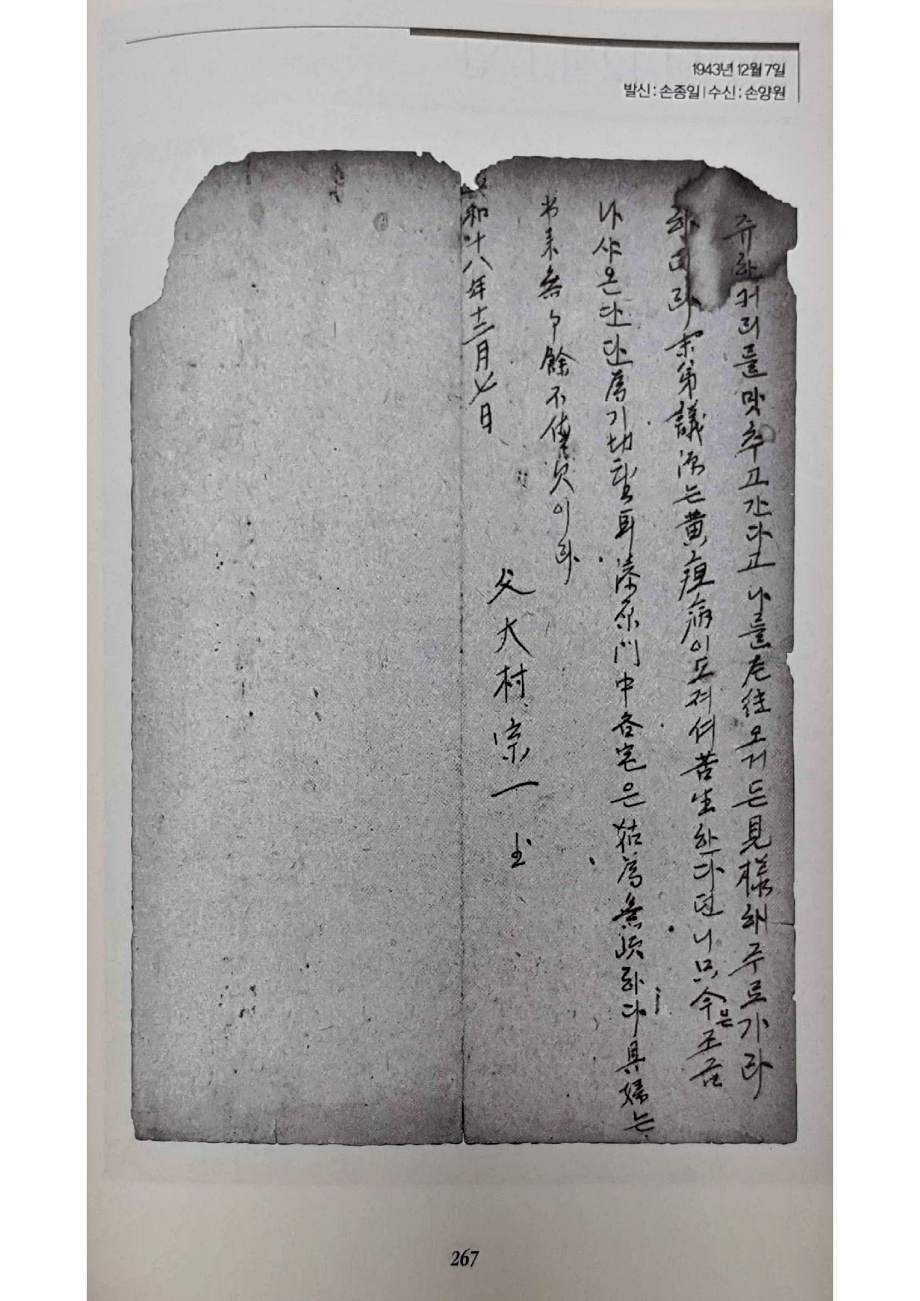 1943년 12월 7일
발신 : 손종일 | 수신 : 손양원
쥬하거리를 맛추고 간다고 나를 往 오거든 見樣해 주로 가라
하더라 宋弟議源는 黃疸病이 도져셔 苦生한다던니 只今은 조금
나사온다 단 爲기切할耳 漆原門中各宅은 姑爲無故하다 具婦는
書末無了餘不備次이라
昭和十八年十二月七日
父大村宗一 書
267